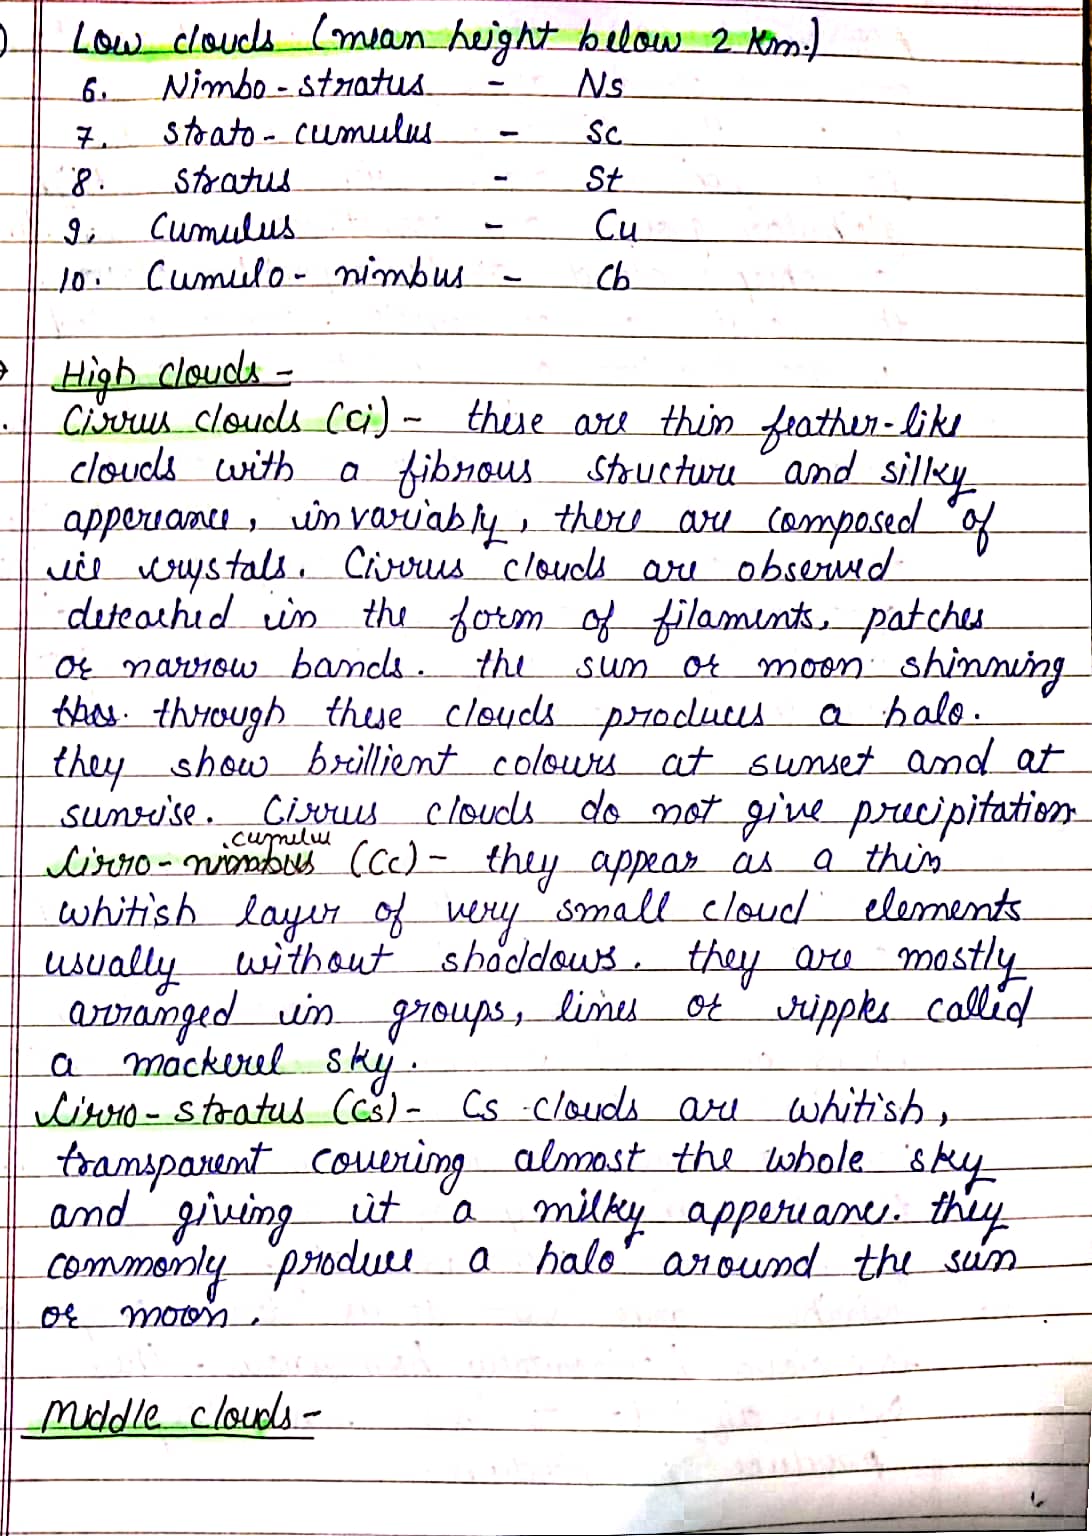 Low clouds (mean height below 2 Km.)
6. Nimbo - stratus - Ns
7. Strato - cumulus - Sc
8. Stratus - St
9. Cumulus - Cu
10. Cumulo - nimbus - Cb
High clouds -
Cirrus clouds (ci) - these are thin feather-like
clouds with a fibrous structure and silky
appereance, invariably, there are composed of
ice crystals. Cirrus clouds are observed
deteached in the form of filaments, patches
or narrow bands. the sun or moon shinning
thos. through these clouds produces a halo.
they show brillient colours at sunset and at
sunrise. Cirrus clouds do not give precipitation
cumulus
Cirro - nimbus (Cc) - they appear as a thin
whitish layer of very small cloud elements
usually without shaddows. they are mostly
arranged in groups, lines or ripples called
a mackerel sky.
Cirro - stratus (Cs) - Cs clouds are whitish,
transparent covering almost the whole sky
and giving it a milky appereance. they
commonly produce a halo around the sun
or moon.
Middle clouds -